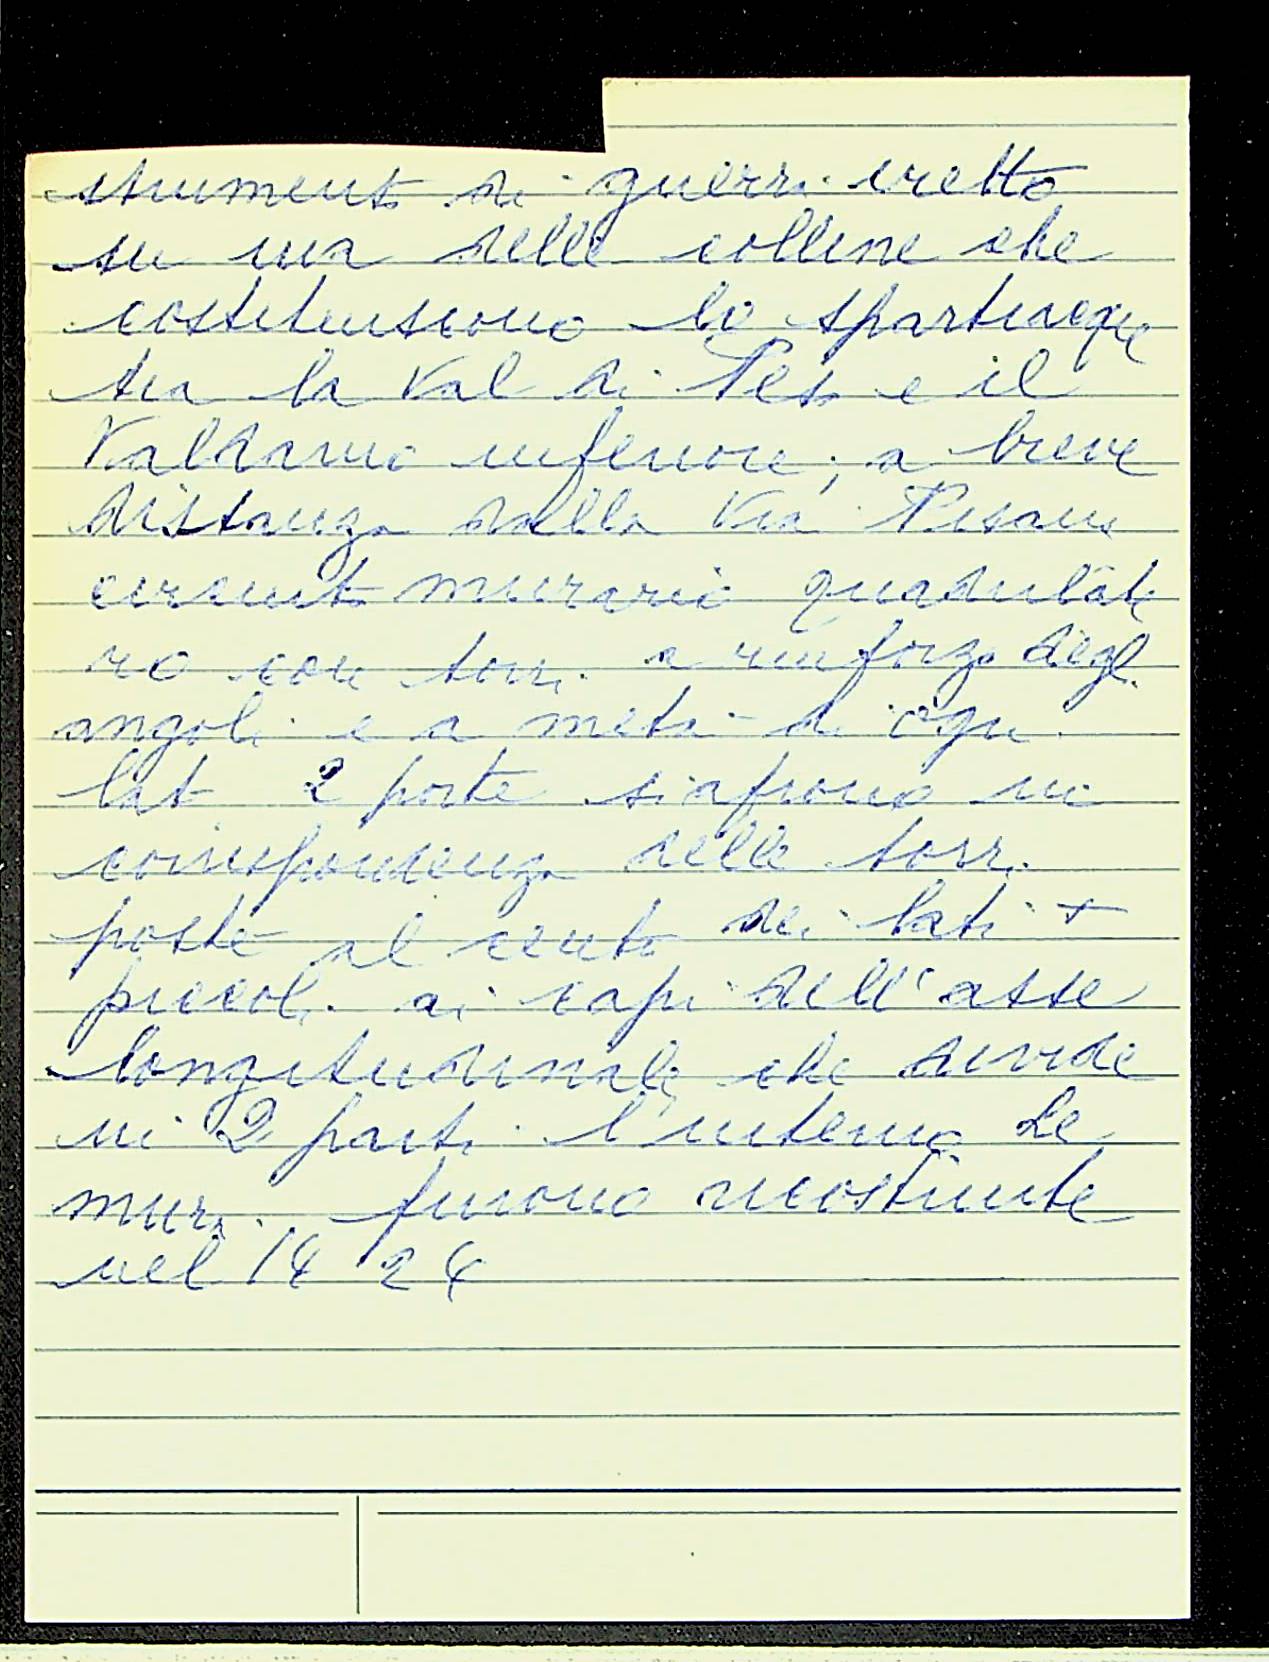 strumento di guerra eretto
su una delle colline che
costituiscono lo spartiacque
tra la Val di Pesa e il
Valdarno inferiore, a breve
distanza dalla Via Pisana
circuito murario quadrilate
ro con torri a rinforzo degli
angoli e a metà di ogni
lato 2 porte si aprono in
corrispondenza delle torri
poste al centro dei lati +
piccoli ai capi dell'asse
longitudinale che divide
in 2 parti l'interno Le
mura furono ricostruite
nel 1424